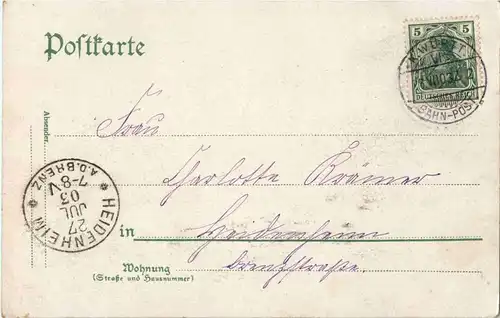 Postkarte
5 5
DEUTSCHES REICH
BAHN-POST
Absender.
Frau
Charlotte Krämer
HEIDENHEIM
A.D.BRENZ
27
JUL
03
7-8V
in Heidenheim
Wohnung
(Straße und Hausnummer)
Brenzstraße.